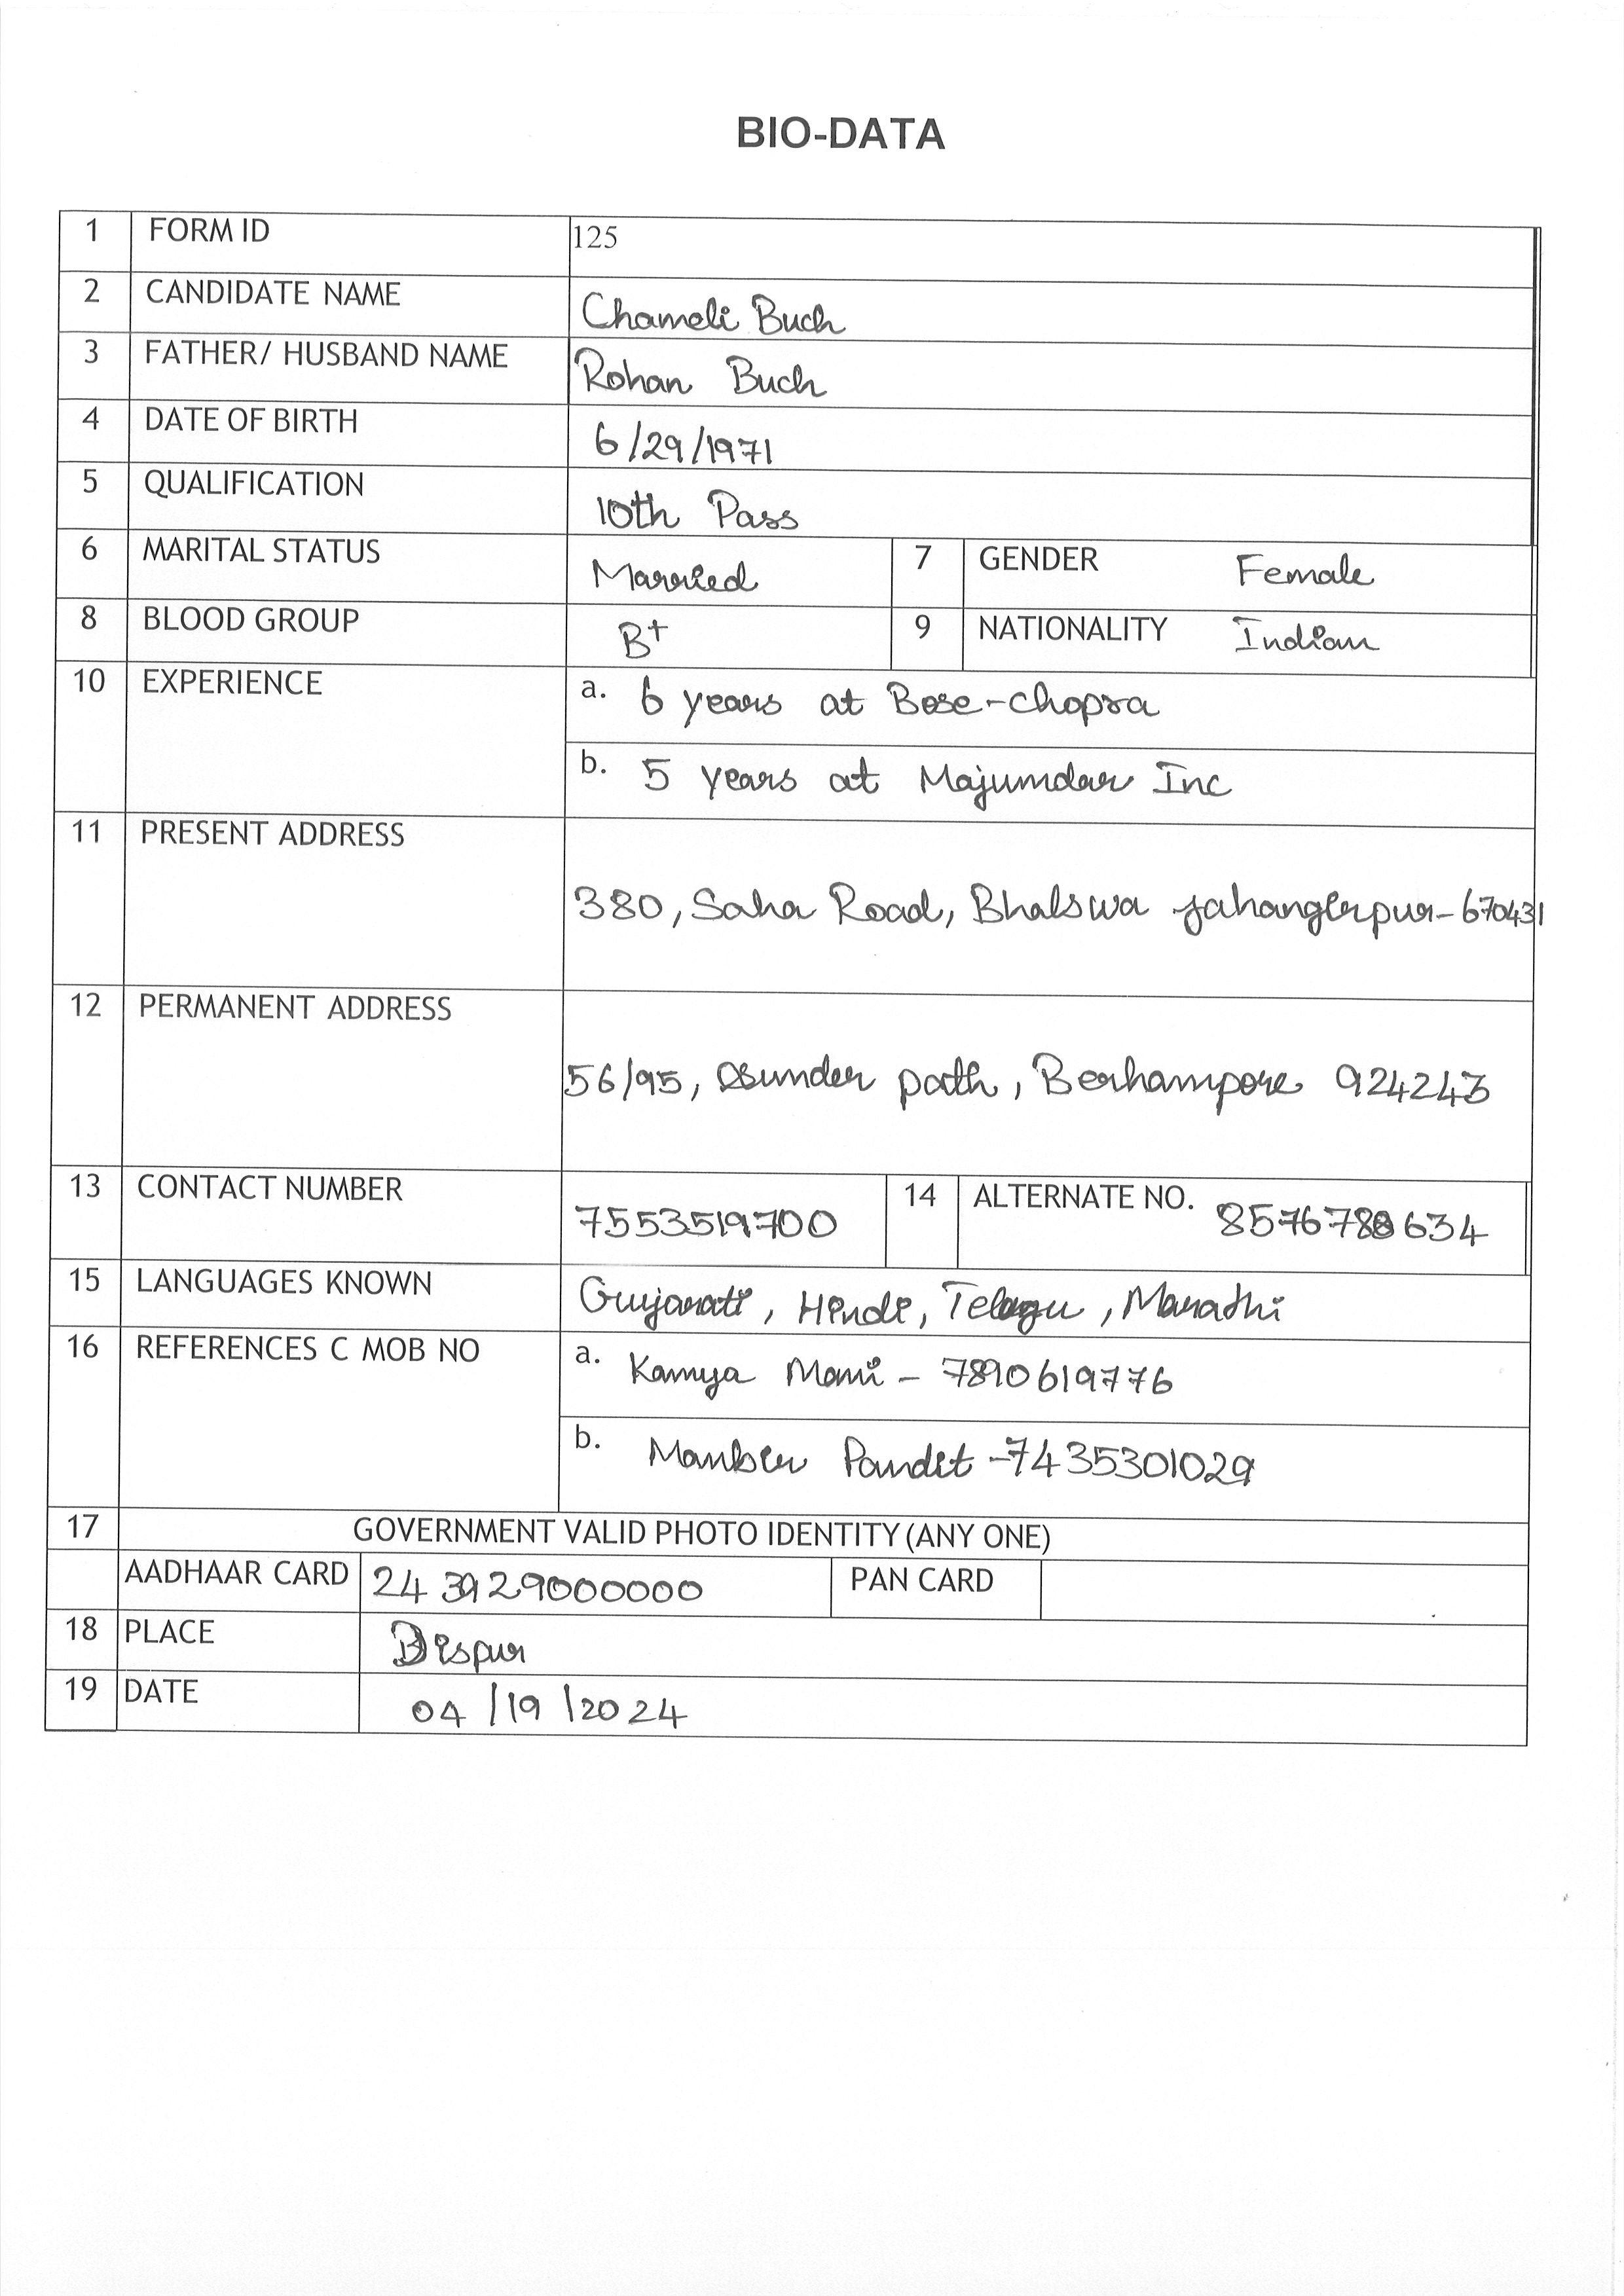 BIO-DATA
1 FORM ID 125
2 CANDIDATE NAME Chameli Buch
3 FATHER/ HUSBAND NAME Rohan Buch
4 DATE OF BIRTH 6/29/1971
5 QUALIFICATION 10th Pass
6 MARITAL STATUS Married 7 GENDER Female
8 BLOOD GROUP B+ 9 NATIONALITY Indian
10 EXPERIENCE a. 6 years at Bose-chopra
b. 5 years at Majumdar Inc
11 PRESENT ADDRESS
380, Saha Road, Bhalswa jahangirpur-670431
12 PERMANENT ADDRESS
56/95, Sunder path, Berhampore 924243
13 CONTACT NUMBER 7553519700 14 ALTERNATE NO. 8576788634
15 LANGUAGES KNOWN Gujarati, Hindi, Telugu, Marathi
16 REFERENCES C MOB NO a. Kamya Mani - 7890619776
b. Manbir Pandit -7435301029
17 GOVERNMENT VALID PHOTO IDENTITY (ANY ONE)
AADHAAR CARD 243929000000 PAN CARD
18 PLACE Dispur
19 DATE 04/19/2024